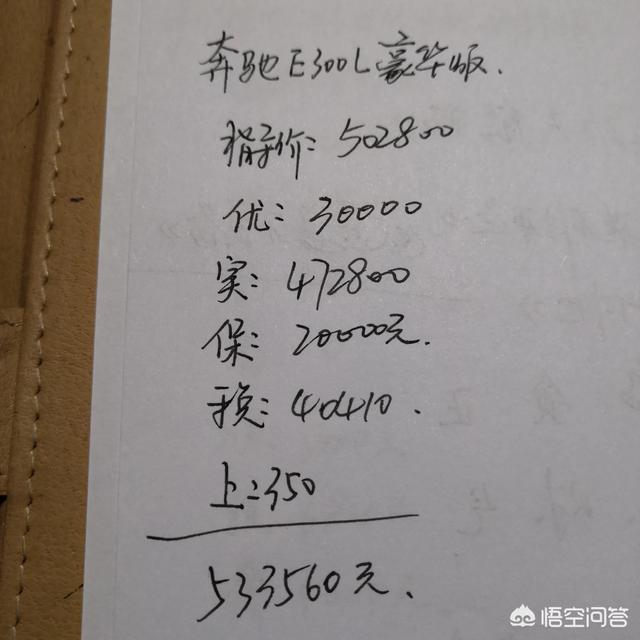 奔驰E300L豪华版.
指导价: 502800
优: 30000
实: 472800
保: 20000元.
税: 40410.
上: 350
533560元.
悟空问答